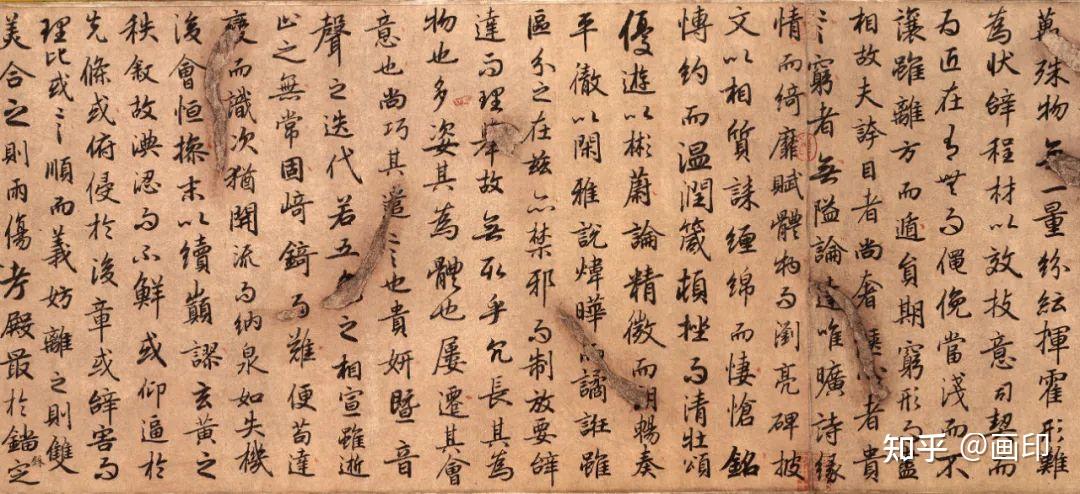 萬殊物無一量紛紜揮霍形難
為狀辭程材以效技意司契而
為匠在有無而僶俛當淺而不
讓雖離方而遁員期窮形而盡
相故夫誇目者尚奢心者貴
〻窮者無隘論達唯曠詩緣
情而綺靡賦體物而瀏亮碑披
文以相質誄纏綿而悽愴銘
愽約而溫潤箴頓挫而清壯頌
優遊以彬蔚論精微而朗暢奏
平徹以閑雅說煒曄而譎誑雖
區分之在茲亦禁邪而制放要辭
達而理舉故無取乎冗長其為
物也多姿其為體也屢遷其會
意也尚巧其遣〻也貴妍暨音
聲之迭代若五色之相宣雖逝
止之無常固崎錡而難便苟達
變而識次猶開流而納泉如失機
後會恒操末以續顛謬玄黃之
秩叙故淟涊而不鮮或仰逼於
先條或俯侵於後章或辭害而
理比或〻順而義妨離之則雙
美合之則兩傷考殿最於錙銖定
知乎 @画印